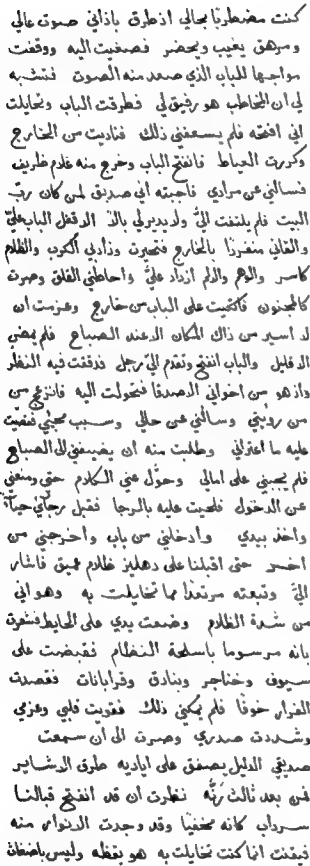 كنت مضطربا بحالي اذ طرق باذاني صوت عالي
ومرهق يغيب ويحضر فصغيت اليه ووقفت
مواجها للباب الذي صعد منه الصوت فتشبه
لي ان المخاطب هو رفيق لي فطرقت الباب وتحايلت
اني افتحه فلم يسعفني ذلك فناديت من الخارج
وكررت العياط فانفتح الباب وخرج منه غلام ظريف
فسالني عن مرادي فاجبته أني صديق لمن كان رب
البيت فلم يلتفت اليّ ولا يدير لي بالا الا وقفل الباب عليّ
والقاني منفرزا بالخارج فتحيرت وزاد بي الكرب والظلام
كاسر والوهم والالم ازداد عليّ واحاطني القلق وصرت
كالمجنون فاتكيت على الباب من خارج وعزمت ان
لا اسير من ذاك المكان الا عند الصباح فلم يمض
الا قليل والباب انفتح وتقدم اليّ رجل فدققت فيه النظر
واذ هو من اخواني الاصدقا فتحولت اليه فانزعج من
من رؤيتي وسالني عن حالي وسبب مجيئي فقصيت
عليه ما اعتراني وطلبت منه ان يضيفني الى الصباح
فلم يجبني على امالي وحوّل عني الكلام حتى ومنعني
عن الدخول فلحيت عليه بالرجا فقبل رجائي حبآ
واخذ بيدي وأدخلني من باب وأخرجني من
اخر حتى اقبلنا على دهليز ظلام عميق فاشار
اليّ وتبعته مرتعدا مما تخايلت به وهو اني
من شدة الظلام وضعت يدي على الحايط فشعرت
بانه مرسوما باسلحة النظام فقبضت على
سيوف وخناجر وبنادق وقرابانات فقصدت
الفرار خوفا فلم يمكني ذلك فقويت قلبي وعزمي
وشددت صدري وصرت الى ان سمعت
صديقي الدليل يصفق على اياديه طرق الاشاير
فمن بعد ثالث رنّه نظرت ان قد انفتح قبالنا
سرداب كانه مخفيا وقد وجدت الانوار منه
فيقنت اننا كنت تخايلت به هو يقظه وليس باضغاث